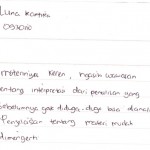 Luna Kartika
093010
materinya keren, ngasih wawasan
tentang interpretasi dari penelitian yang
sebelumnya gak diduga-duga bisa
Penjelasan tentang materi mudah
dimengerti